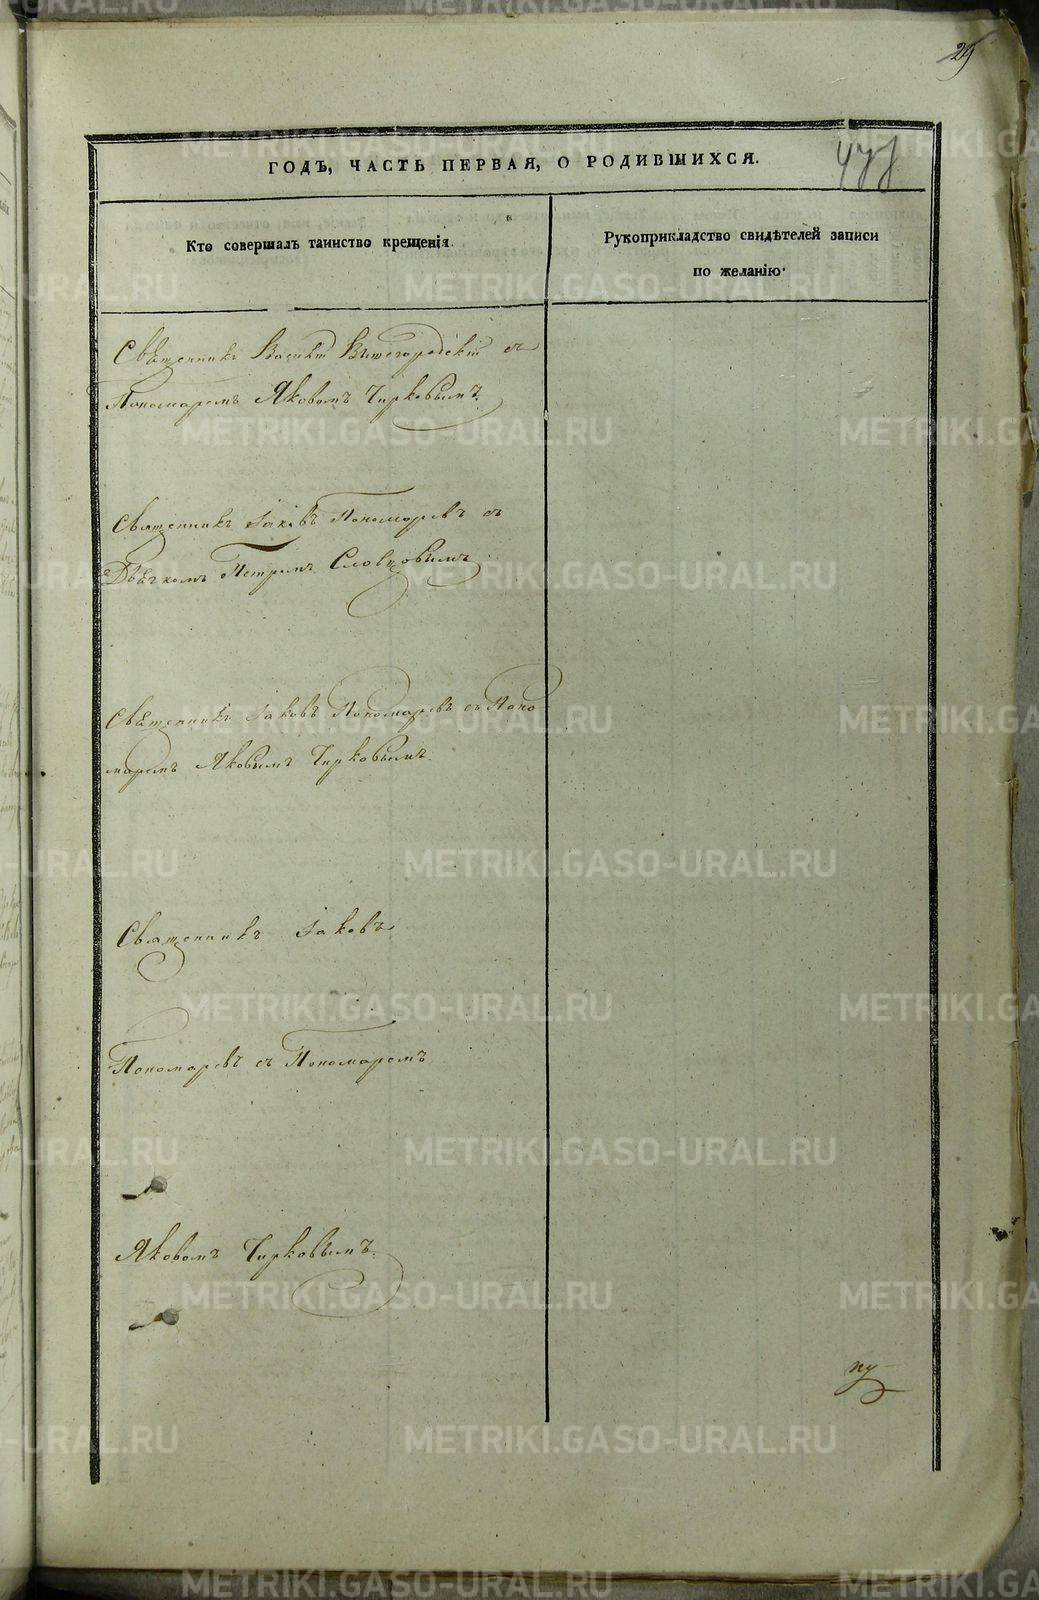 29
ГОДЪ, ЧАСТЬ ПЕРВАЯ, О РОДИВШИХСЯ.
Кто совершалъ таинство крещенія
Рукоприкладство свидѣтелей записи
по желанію.
Священникъ Вышегородскій съ
Пономаремъ Яковомъ Чирковымъ
Священникъ Іаковъ Пономаревъ съ
Дьячкомъ Петромъ Словцовымъ
Священникъ Іаковъ Пономаревъ съ Поно
маремъ Яковымъ Чирковымъ
Священникъ Іаковъ
Пономаревъ съ Пономаремъ
Яковомъ Чирковымъ
METRIKI.GASO-URAL.RU